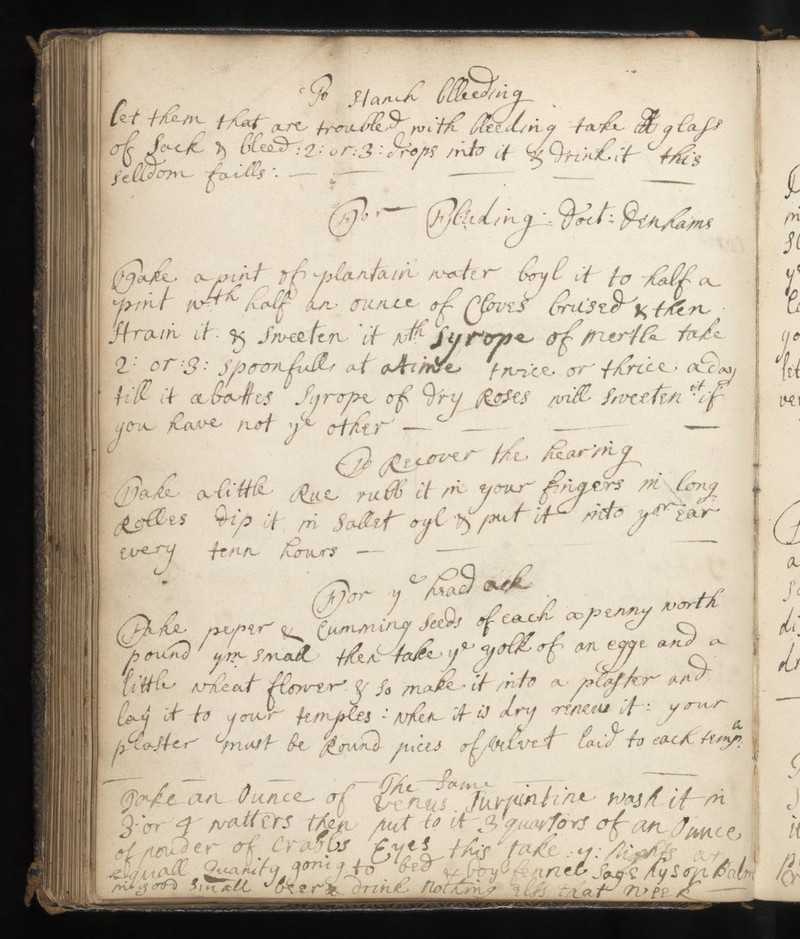 To stanch blleeding
let them that are troubled with bleeding take A glass
of Sack & bleed :2: or :3: drops into it & drink it this
selldom faills :
For Bluding : Doct : Denhams
Take a pint of plantain water boyl it to half a
pint wth half an ounce of Cloves brused & then
strain it & sweeten it wth Syrope of mertle take
2: or :3: spoonfulls at a time twice or thrice a day
till it abattes Syrope of dry Roses will sweeten it if
you have not ye other
To Recover the hearing
Take a little Rue rubb it in your fingers in long
Rolles dip it in Sallet oyl & put it into yor ear
every tenn hours
For ye head ack
Take peper & Cumming seeds of each a penny worth
pound ym small then take ye yolk of an egge and a
little wheat flower & so make it into a plaster and
lay it to your temples : when it is dry reneue it : your
plaster must be Round pices of velvet laid to each temp:
The Same
Take an Ounce of Venus Turpintine wash it in
3 or 4 watters then put to it 3 quartors of an Ounce
of pouder of Crabbs Eyes this take
equall Quanity goinig to bed & boyl fennel Sage hyson Balm
in good small beer & drink nothing that week